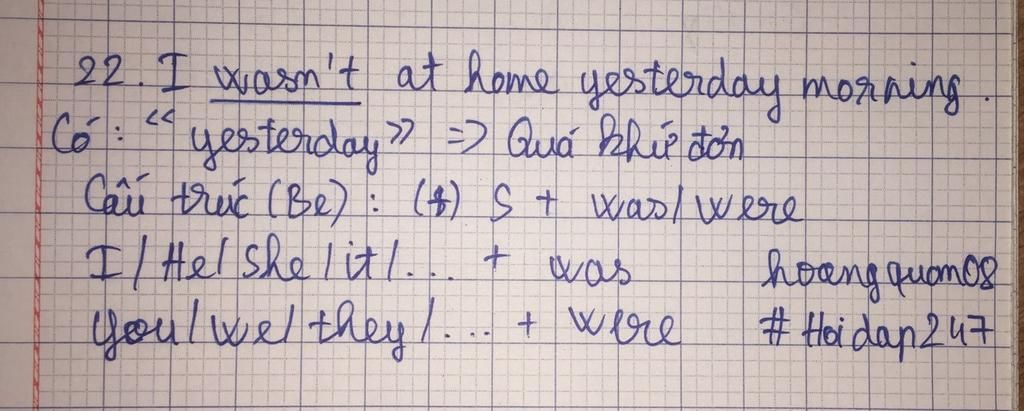 22. I wasn't at home yesterday morning.
Có: "yesterday" => Quá khứ đơn
Cấu trúc (Be): (+) S + was/were
I/He/She/it/... + was hoangquan08
you/we/they/... + were #Hoidap247